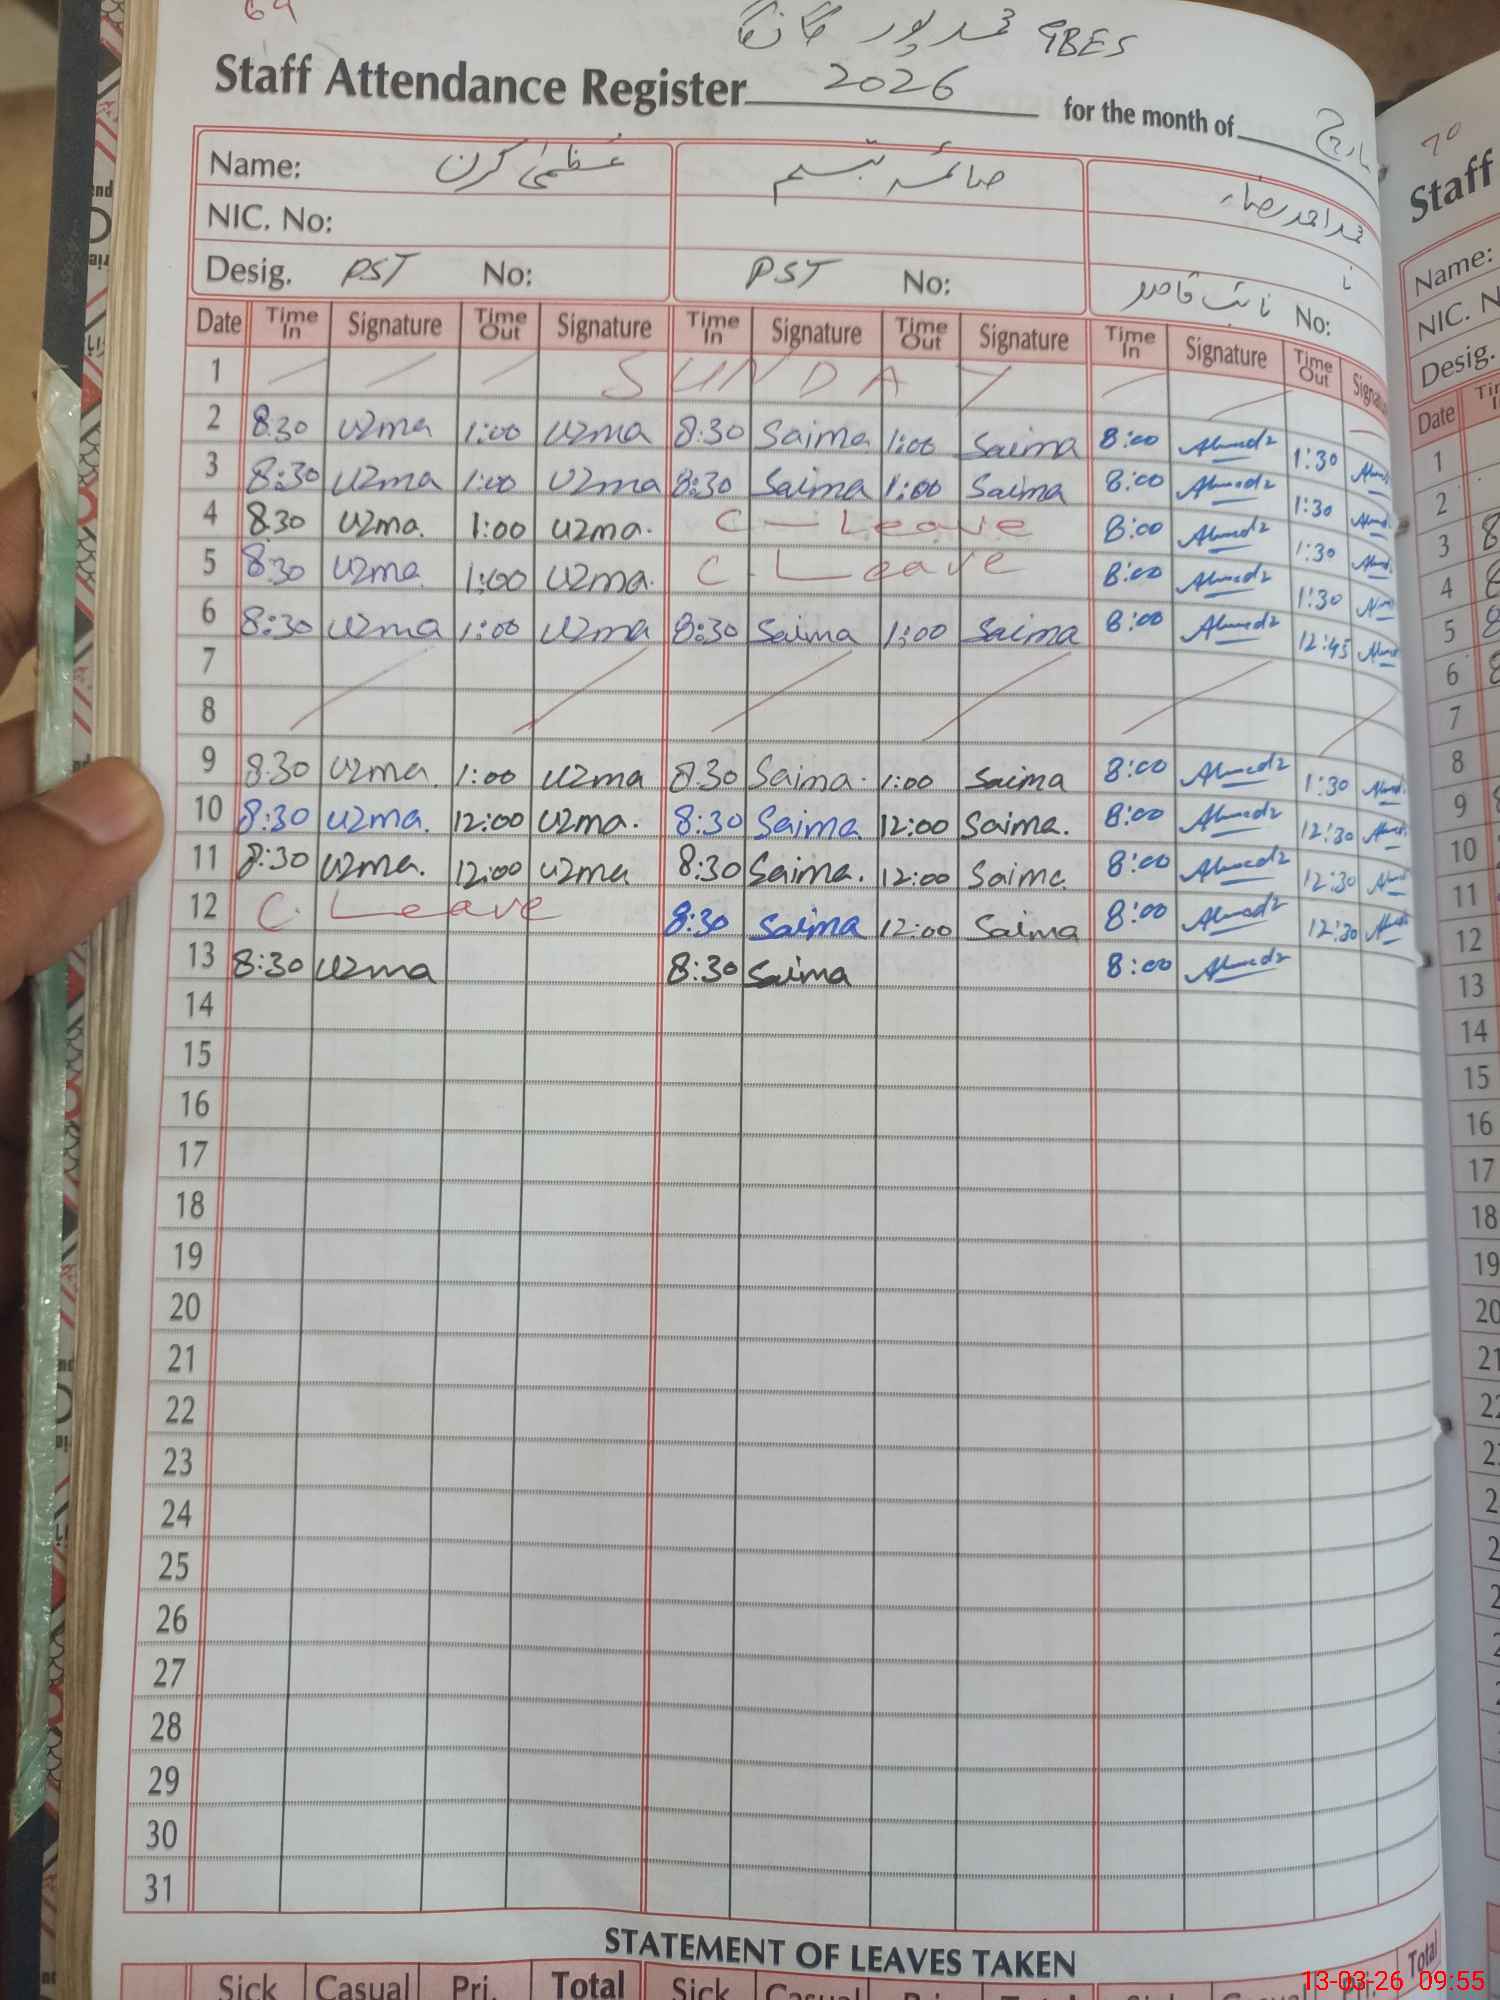 69
GBES محمد پور
Staff Attendance Register 2026 for the month of مارچ
Name: عظمیٰ کرن صائمہ تبسم محمد احمد رضا
NIC. No:
Desig. PST No: PST No: نائب قاصد No:
Date Time In Signature Time Out Signature Time In Signature Time Out Signature Time In Signature Time Out Signature
1 SUNDAY
2 8:30 Uzma 1:00 Uzma 8:30 Saima 1:00 Saima 8:00 Ahmed 1:30 Ahmed
3 8:30 Uzma 1:00 Uzma 8:30 Saima 1:00 Saima 8:00 Ahmed 1:30 Ahmed
4 8:30 Uzma. 1:00 Uzma. C - Leave 8:00 Ahmed 1:30 Ahmed
5 8:30 Uzma 1:00 Uzma. C. Leave 8:00 Ahmed 1:30 Ahmed
6 8:30 Uzma 1:00 Uzma 8:30 Saima 1:00 Saima 8:00 Ahmed 12:45 Ahmed
7
8
9 8:30 Uzma. 1:00 Uzma 8:30 Saima. 1:00 Saima 8:00 Ahmed 1:30 Ahmed
10 8:30 Uzma. 12:00 Uzma. 8:30 Saima 12:00 Saima. 8:00 Ahmed 12:30 Ahmed
11 8:30 Uzma. 12:00 Uzma 8:30 Saima. 12:00 Saima 8:00 Ahmed 12:30 Ahmed
12 C. Leave 8:30 Saima 12:00 Saima 8:00 Ahmed 12:30 Ahmed
13 8:30 Uzma 8:30 Saima 8:00 Ahmed
14
15
16
17
18
19
20
21
22
23
24
25
26
27
28
29
30
31
STATEMENT OF LEAVES TAKEN
Sick Casual Pri. Total Sick Casual Pri. Total Sick Casual Pri. Total
70
Staff
Name:
NIC. N
Desig.
Date
1
2
3
4
5
6
7
8
9
10
11
12
13
14
15
16
17
18
19
20
21
13-03-26 09:55